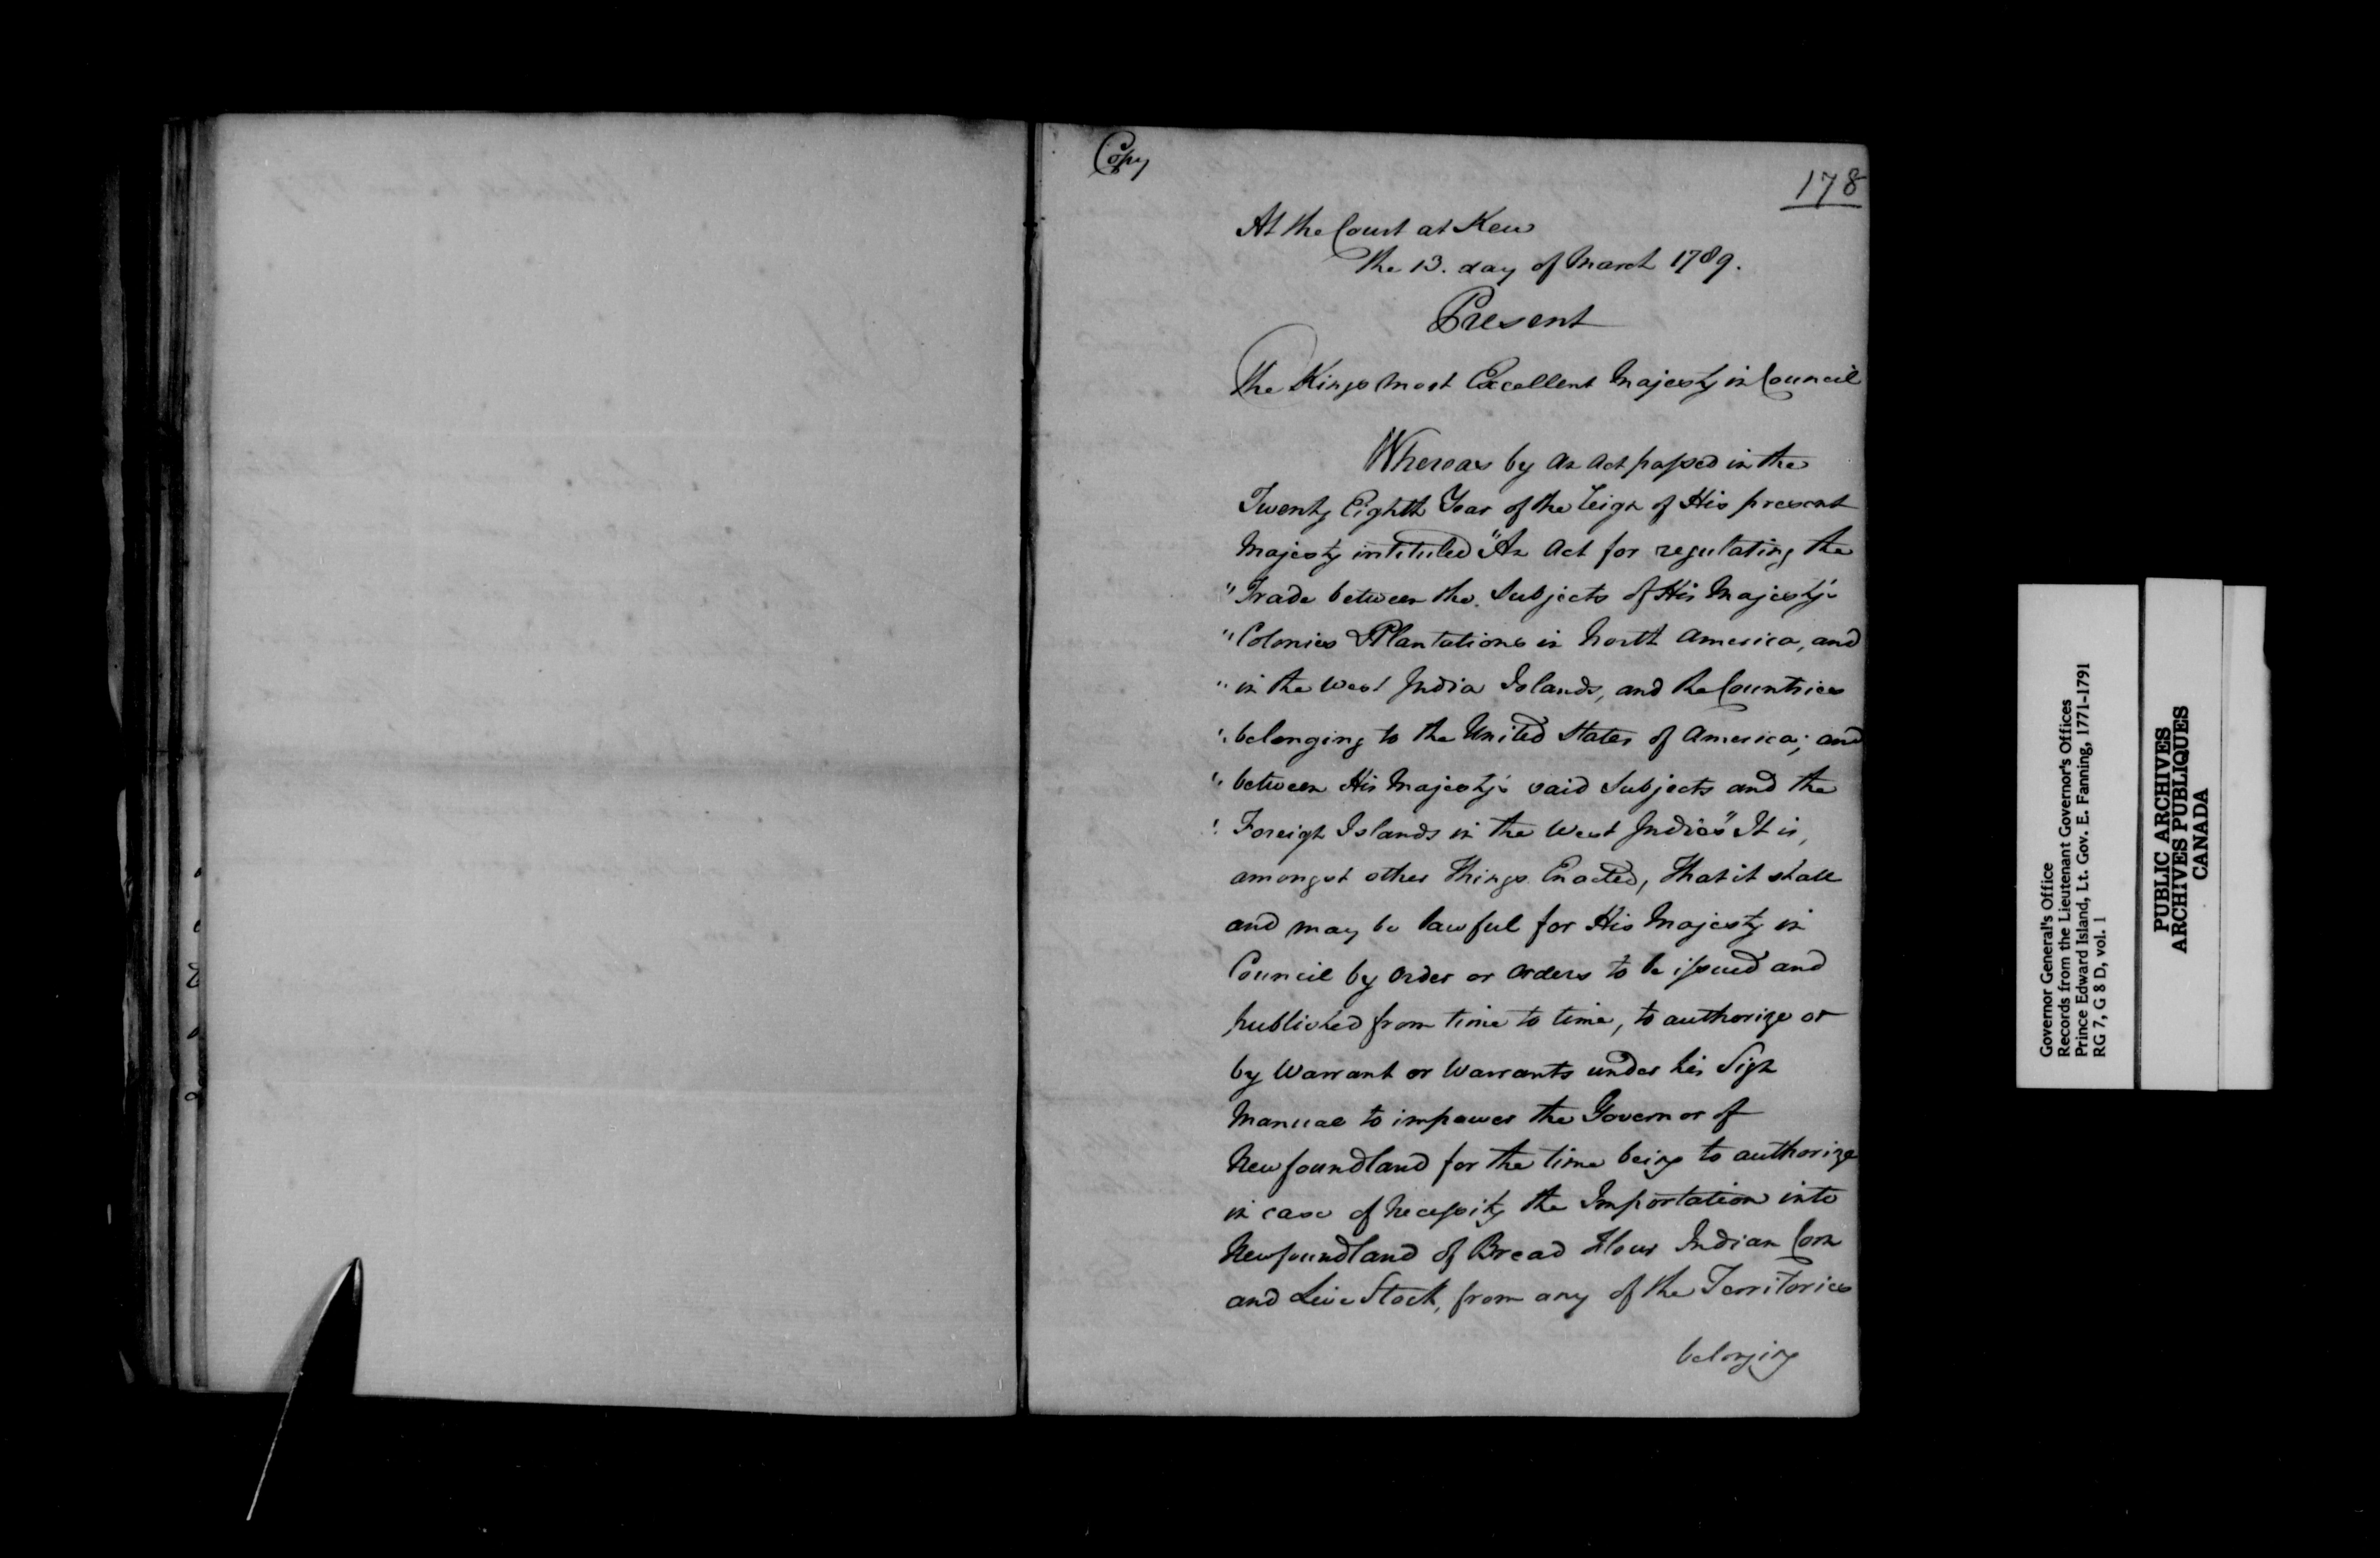 Copy
178
At the Court at Kew
The 13. day of March 1789.
Present
The Kings most Excellent Majesty in Council
Whereas by an Act passed in the
Twenty Eighth Year of the Reign of His present
Majesty intituled "An Act for regulating the
" Trade between the Subjects of His Majesty's
" Colonies & Plantations in North America, and
" in the West India Islands, and the Countries
" belonging to the United States of America; and
" between His Majesty's said Subjects and the
" Foreign Islands in the West Indies" It is,
amongst other Things Enacted, That it shall
and may be lawful for His Majesty in
Council by Order or Orders to be issued and
published from time to time, to authorize or
by Warrant or Warrants under his Sign
Manual to impower the Governor of
Newfoundland for the time being to authorize
in case of Necessity the Importation into
Newfoundland of Bread Flour Indian Corn
and Live Stock, from any of the Territories
belonging
Governor General's Office
Records from the Lieutenant Governor's Offices
Prince Edward Island, Lt. Gov. E. Fanning, 1771-1791
RG 7, G 8 D, vol. 1
PUBLIC ARCHIVES
ARCHIVES PUBLIQUES
CANADA